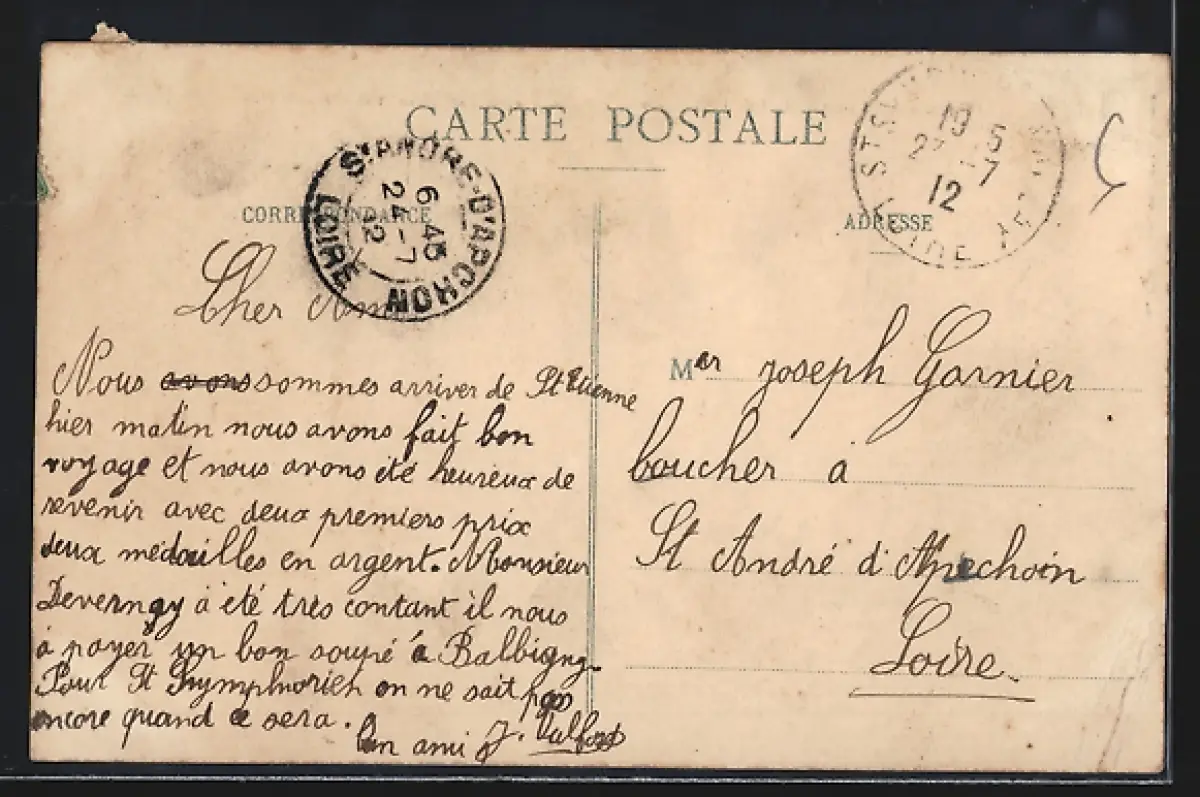 CARTE POSTALE
CORRESPONDANCE
ADRESSE
ST ANDRE-D'APCHON
6 45
24-7
12
LOIRE
19 5
27 -7
12
LOIRE
Cher Ami
Nous avons sommes arriver de St Etienne
hier matin nous avons fait bon
voyage et nous avons été heureux de
revenir avec deux premiers prix
deux médailles en argent. Monsieur
à été très contant il nous
à payer un bon soupé à Balbigny
Pour St Symphorien on ne sait pas
encore quand ce sera.
Un ami J.
Mer joseph Garnier
boucher à
St André d'Apechoin
Loire